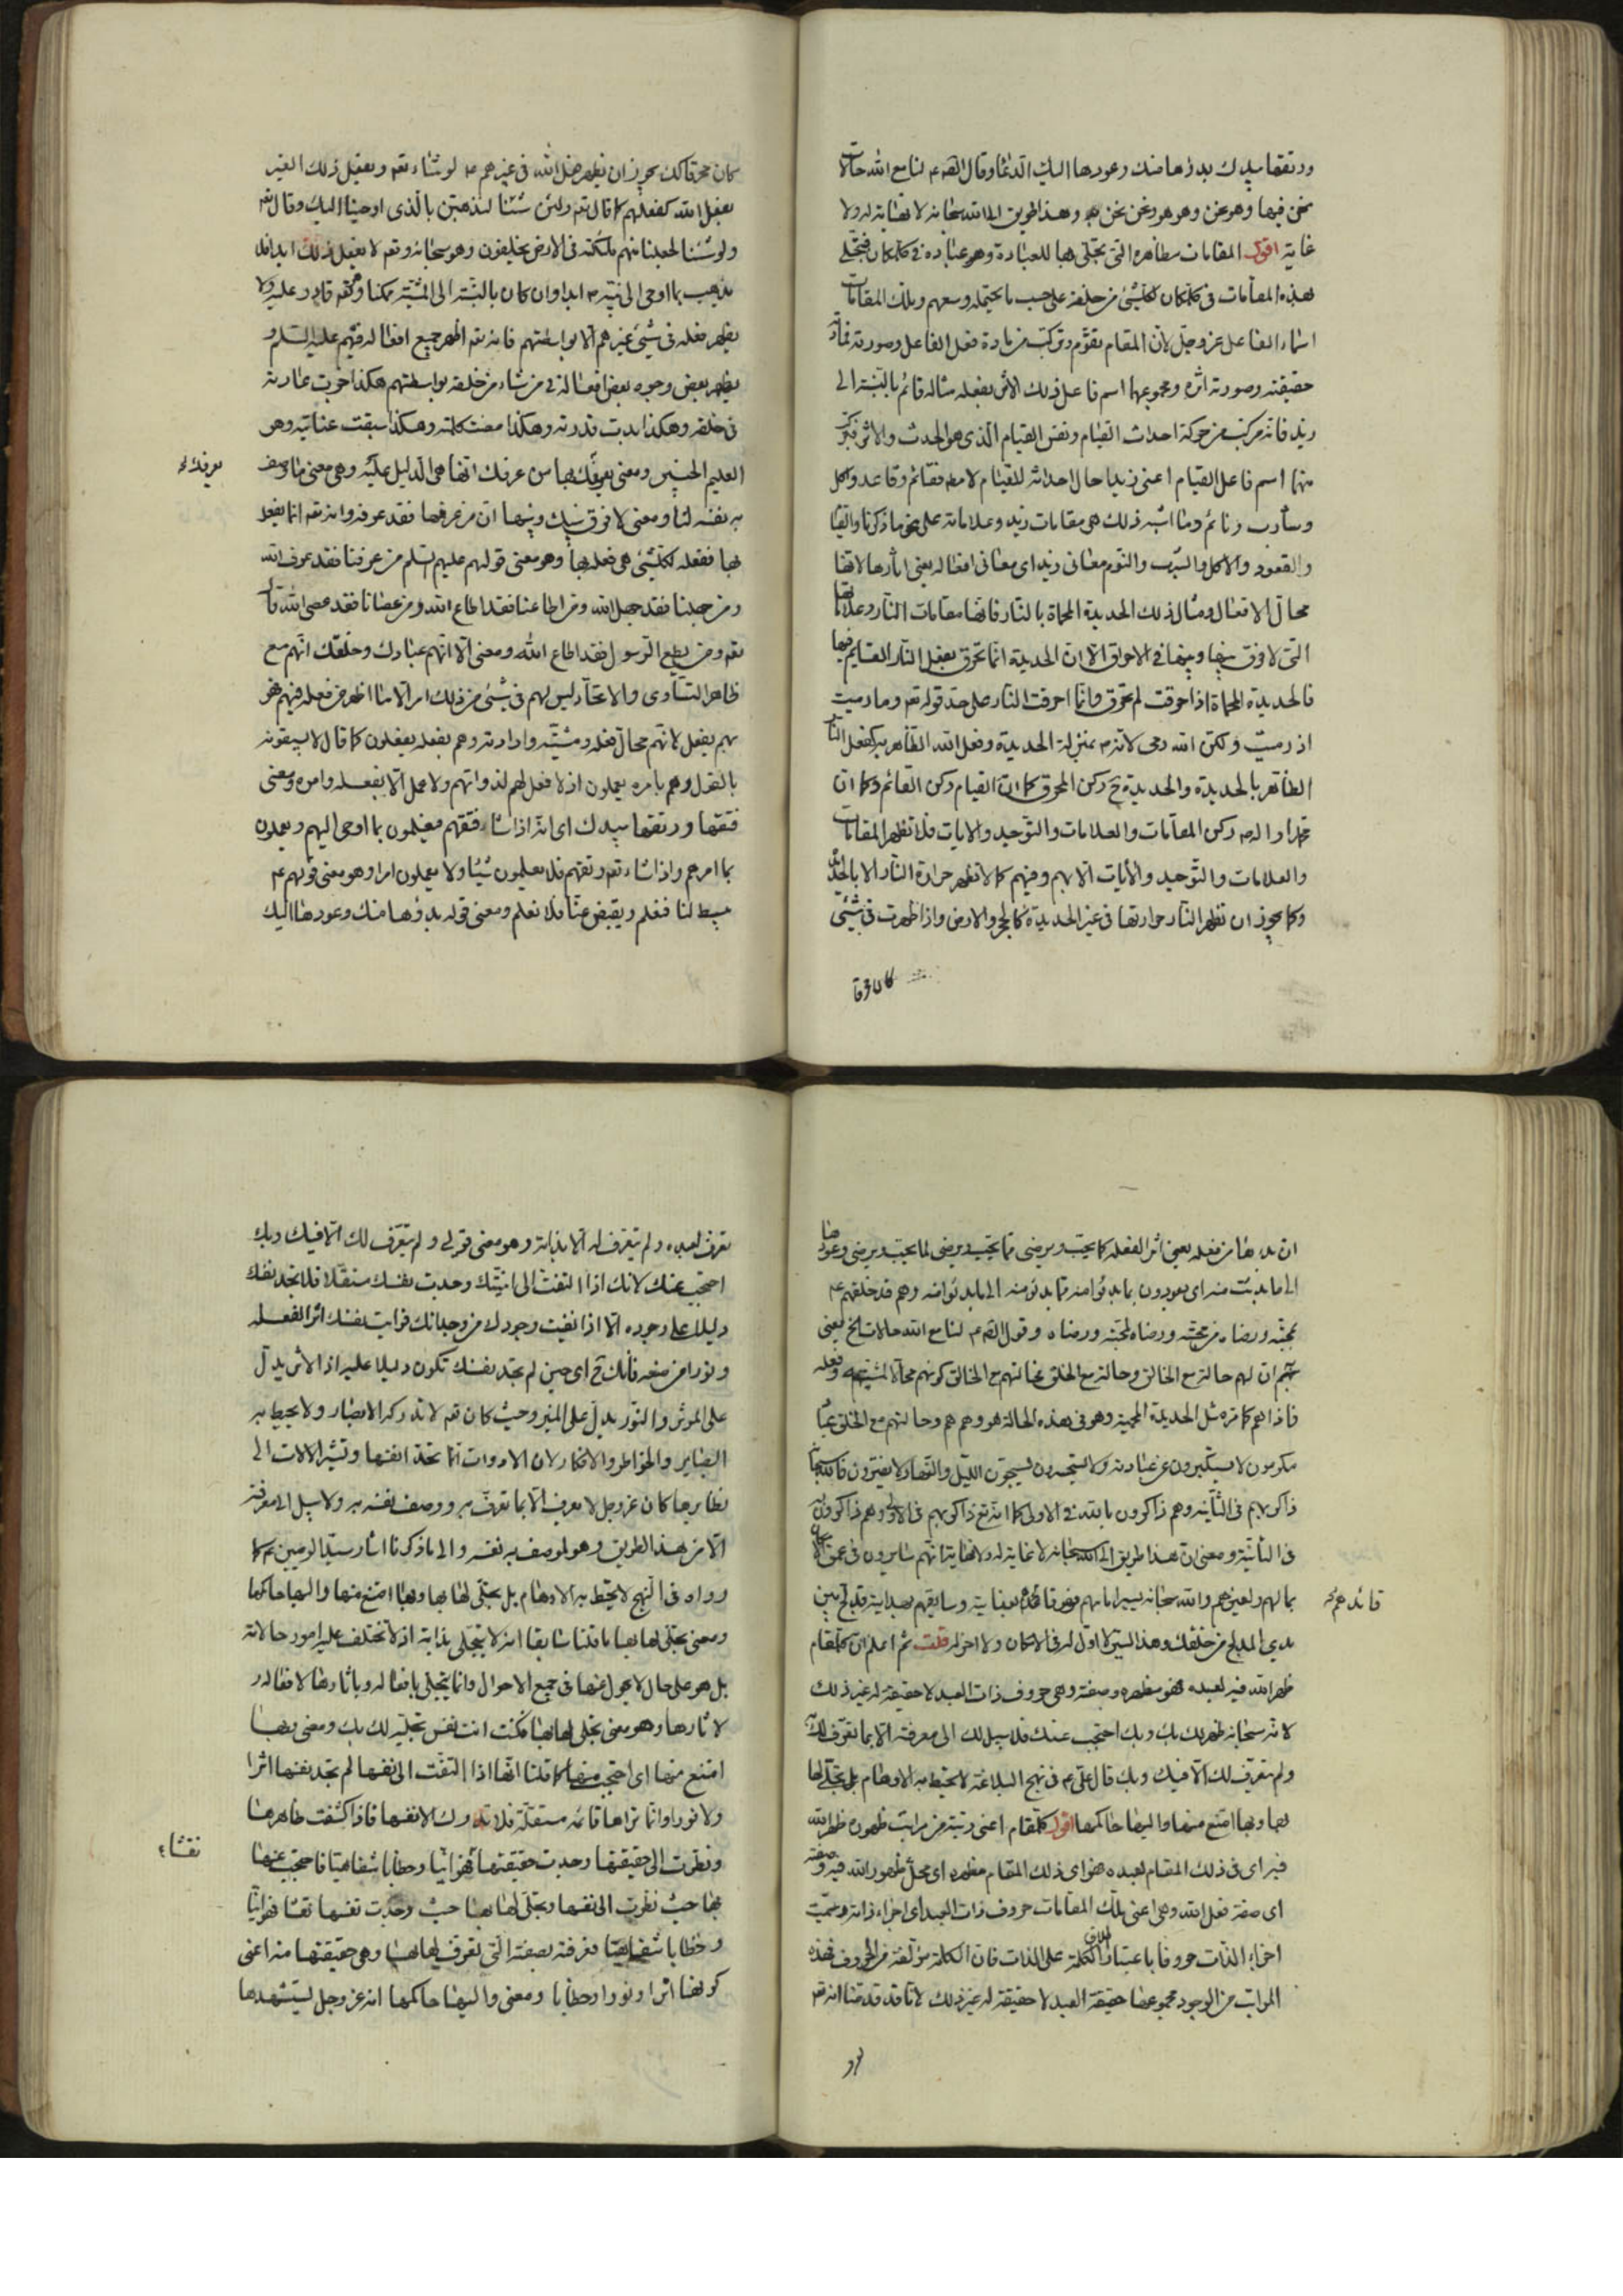 ورتقها بيدك بدؤها منك وعودها اليك الدعا وقال الصم لنا مع الله حالات
نحن فيها وهو نحن وهو هو ونحن نحن وهذا طريق الى الله سبحانه لا نهاية له ولا
غاية اقول المقامات مظاهره التى يتجلى بها للعبادة وهو عباده في كل مكان فيتجلى
بهذه المقامات في كل مكان لكل شئ من خلقه على حسب ما يحتمله وسعهم وتلك المقامات
اسماء الفاعل عز وجل لان المقام يتقوم ويتركب من مادة فعل الفاعل وصورته فمادته
حقيقته وصورته اثره ومجموعهما اسم فاعل ذلك الاثر بفعله مثاله قائم بالنسبة الى
زيد فانه مركب من حركة احداث القيام ونفس القيام الذى هو الحدث والاثر فتركب
منهما اسم فاعل القيام اعنى زيدا حال احداثه للقيام لا مطه فقائم وقاعد واكل
وشارب ونائم وما اشبه ذلك هى مقامات زيد وعلاماته على نحو ما ذكرنا والقيام
والقعود والاكل والشرب والنوم معانى زيد اى معانى افعاله يعنى اثارها لانها
محال الافعال ومثال ذلك الحديدة المحماة بالنار فانها مقامات النار وعلاماتها
التى لا فرق بينها وبينها في الاحراق الا ان الحديدة انما تحرق بفعل النار القائم فيها
فالحديدة المحماة اذا احرقت لم تحرق وانما احرقت النار على حد قوله تعم وما رميت
اذ رميت ولكن الله رمى لانه بمنزلة الحديدة وفعل الله الظاهر به كفعل النار
الظاهر بالحديدة والحديدة ح ركن المحرق كما ان القيام ركن القائم وكما ان
محمدا واله ركن المقامات والعلامات والتوحيد والايات فلا تظهر المقامات
والعلامات والتوحيد والايات الا بهم وفيهم كما لا تظهر حرارة النار الا بالحديدة
وكما يجوز ان تظهر النار حرارتها في غير الحديدة كالحجر والارض واذا ظهرت في شئ
كان محرقا
كان محرقا كك يجوز ان يظهر فعل الله في غيرهم لو شاء تعم ويفعل ذلك الغير
بفعل الله كفعلهم كما قال تعم ولئن شئنا لنذهبن بالذى اوحينا اليك وقال تعم
ولو شئنا لجعلنا منهم ملئكة في الارض يخلفون وهو سبحانه وتعم لا يفعل ذلك ابدا فلا
يذهب بما اوحى الى نبيه ابدا وان كان بالنسبة الى المشية ممكنا وهو تعم قادر عليه ولا
يظهر فعله في شئ غيرهم الا بواسطتهم فانه تعم اظهر جميع افعاله فيهم عليهم السلم و
يظهر بعض وجوه بعض افعاله في من شاء من خلقه بواسطتهم هكذا جرت عادته
في خلقه وهكذا بدت قدرته وهكذا مضت كلمته وهكذا سبقت عنايته وهو
العليم الخبير ومعنى يعرفك بها من عرفك انها هى الدليل عليه وهى معنى ما وصف
يعرفك
به نفسه لنا ومعنى لا فرق بينك وبينها ان من عرفها فقد عرفه وانه تعم انما يفعل
بها ففعله لكل شئ هى فعله بها وهو معنى قولهم عليهم السلم من عرفنا فقد عرف الله
ومن جهلنا فقد جهل الله ومن اطاعنا فقد اطاع الله ومن عصانا فقد عصى الله قال
تعم ومن يطع الرسول فقد اطاع الله ومعنى الا انهم عبادك وخلقك انهم مع
ظاهر التساوى والاتحاد ليس لهم في شئ من ذلك امر الا ما اظهر من فعله فيهم فهو
بهم يفعل لانهم محال فعله ومشيته وارادته وهم بفعله يفعلون كما قال لا يسبقونه
بالقول وهم بامره يعملون اذ لا فعل لهم لذواتهم ولا عمل الا بفعله وامره ومعنى
فتقها ورتقها بيدك اى انه اذا شاء فتقهم فيعلمون بما اوحى اليهم ويعملون
بما امرهم واذا شاء تعم رتقهم فلا يعلمون شيئا ولا يعملون امرا وهو معنى قولهم
يبسط لنا فنعلم ويقبض عنا فلا نعلم ومعنى قوله بدؤها منك وعودها اليك
ان بدءها من فعله يعنى اثر الفعله كما يحب ويرضى مما يحب ويرضى لما يحب ويرضى وعودها
الى ما بدئت منه اى يعودون بما بدئوا منه مما بدئو منه الى ما بدئوا منه وهم قد خلقهم
بمحبته ورضاه من محبته ورضاه لمحبته ورضاه وقول الصم لنا مع الله حالات الخ يعنى
ان لهم حالة مع الخالق وحالة مع الخلق فحالتهم مع الخالق كونهم محالا لمشيته وفعله
فاذا هم كما تره مثل الحديدة المحمية وهو في هذه الحالة هو وهم هم وحالتهم مع الخلق عباد
مكرمون لا يستكبرون عن عبادته ولا يستحسرون يسبحون الليل والنهار لا يفترون فالله سبحانه
ذاكر بهم في الثانية وهم ذاكرون بالله في الاولى كما انه تع ذاكر بهم في الاولى وهم ذاكرون له
في الثانية ومعنى ان هذا طريق الى الله سبحانه لا غاية له ولا نهاية انهم سايرون في عمق
بما لهم ولغيرهم والله سبحانه يسير امامهم فهو قائدهم بعنايته وسايقهم بهدايته تدلج بين
قائدهم
يدي المدلج من خلقك وهذا السير لا اول له في الامكان ولا اخر له قلت ثم اعلم ان كل مقام
ظهر الله فيه لعبده فهو مظهره وصفته وهى حروف ذات العبد لا حقيقة له غير ذلك
لانه سبحانه ظهر لك بك وبك احتجب عنك فلا سبيل لك الى معرفته الا بما تعرف لك به
ولم يتعرف لك الا فيك وبك قال على في نهج البلاغة لا تحيط به الاوهام بل تجلى لها
بها وبها امتنع منها واليها حاكمها اقول كل مقام اعنى رتبة من مراتب ظهوره ظهر الله
فيه اى في ذلك المقام لعبده فهو اى ذلك المقام مظهره اى محل ظهور الله فيه وصفته
اى صفة فعل الله وهى اعنى تلك المقامات حروف ذات العبد اى اجزاء ذاته وسميت
اجزاء الذات حروفا باعتبار اطلاق الكلمة على الذات فان الكلمة مؤلفة من الحروف فهذه
المراتب من الوجود مجموعها حقيقة العبد لا حقيقة له غير ذلك لانا قد قدمنا انه تعم
تعرف لعبده ولم يتعرف له الا بذاته وهو معنى قولى ولم يتعرف لك الا فيك وبك
احتجب عنك لانك اذا التفت الى انيتك وجدت نفسك مستقلا فلا تجد نفسك
دليلا على وجوده الا اذا نفيت وجودك من وجدانك فرايت نفسك اثر الفعله
ونورا من صنعه فانك ح اى حين لم تجد نفسك تكون دليلا عليه اذ الاثر يدل
على الموثر والنور يدل على المنير وحيث كان تعم لا تدركه الابصار ولا يحيط به
البصاير والخواطر والافكار لان الادوات انما تحد انفسها وتشير الالات الى
نظايرها كان عز وجل لا يعرف الا بما تعرف به ووصف نفسه به ولا سبيل الى معرفته
الا من هذا الطريق وهو لوصف به نفسه والى ما ذكرنا اشار سيد الوصيين كما
رواه في النهج لا تحيط به الاوهام بل تجلى لها بها وبها امتنع منها واليها حاكمها
ومعنى تجلى لها بها ما قلنا سابقا انه لا يتجلى بذاته اذ لا تختلف عليه امور حالاته
بل هو على حال لا يحول عنها في جميع الاحوال وانما يتجلى بافعاله وباثارها لافعاله و
لاثارها وهو معنى تجلى لها بها فكنت انت نفس تجليه لك بك ومعنى وبها
امتنع منها اى احتجب منها كما قلنا انها اذا التفت الى نفسها لم تجد نفسها اثرا
ولا نورا وانما تراها قائمة مستقلة فلا تدرك الا نفسها فاذا كشفت ظاهرها
ونظرت الى حقيقتها وجدت حقيقتها فهوانيا وخطابا شفاهيا فاحتجب عنها
نقشا
بها حيث نظرت الى نفسها وتجلى لها بها حيث وجدت نفسها نقشا فهوانيا
وخطابا شفاهيا فعرفته بصفته التى تعرف لها بها وهى حقيقتها منه اعنى
كونها اثرا ونورا وخطابا ومعنى واليها حاكمها انه عز وجل يستشهدها